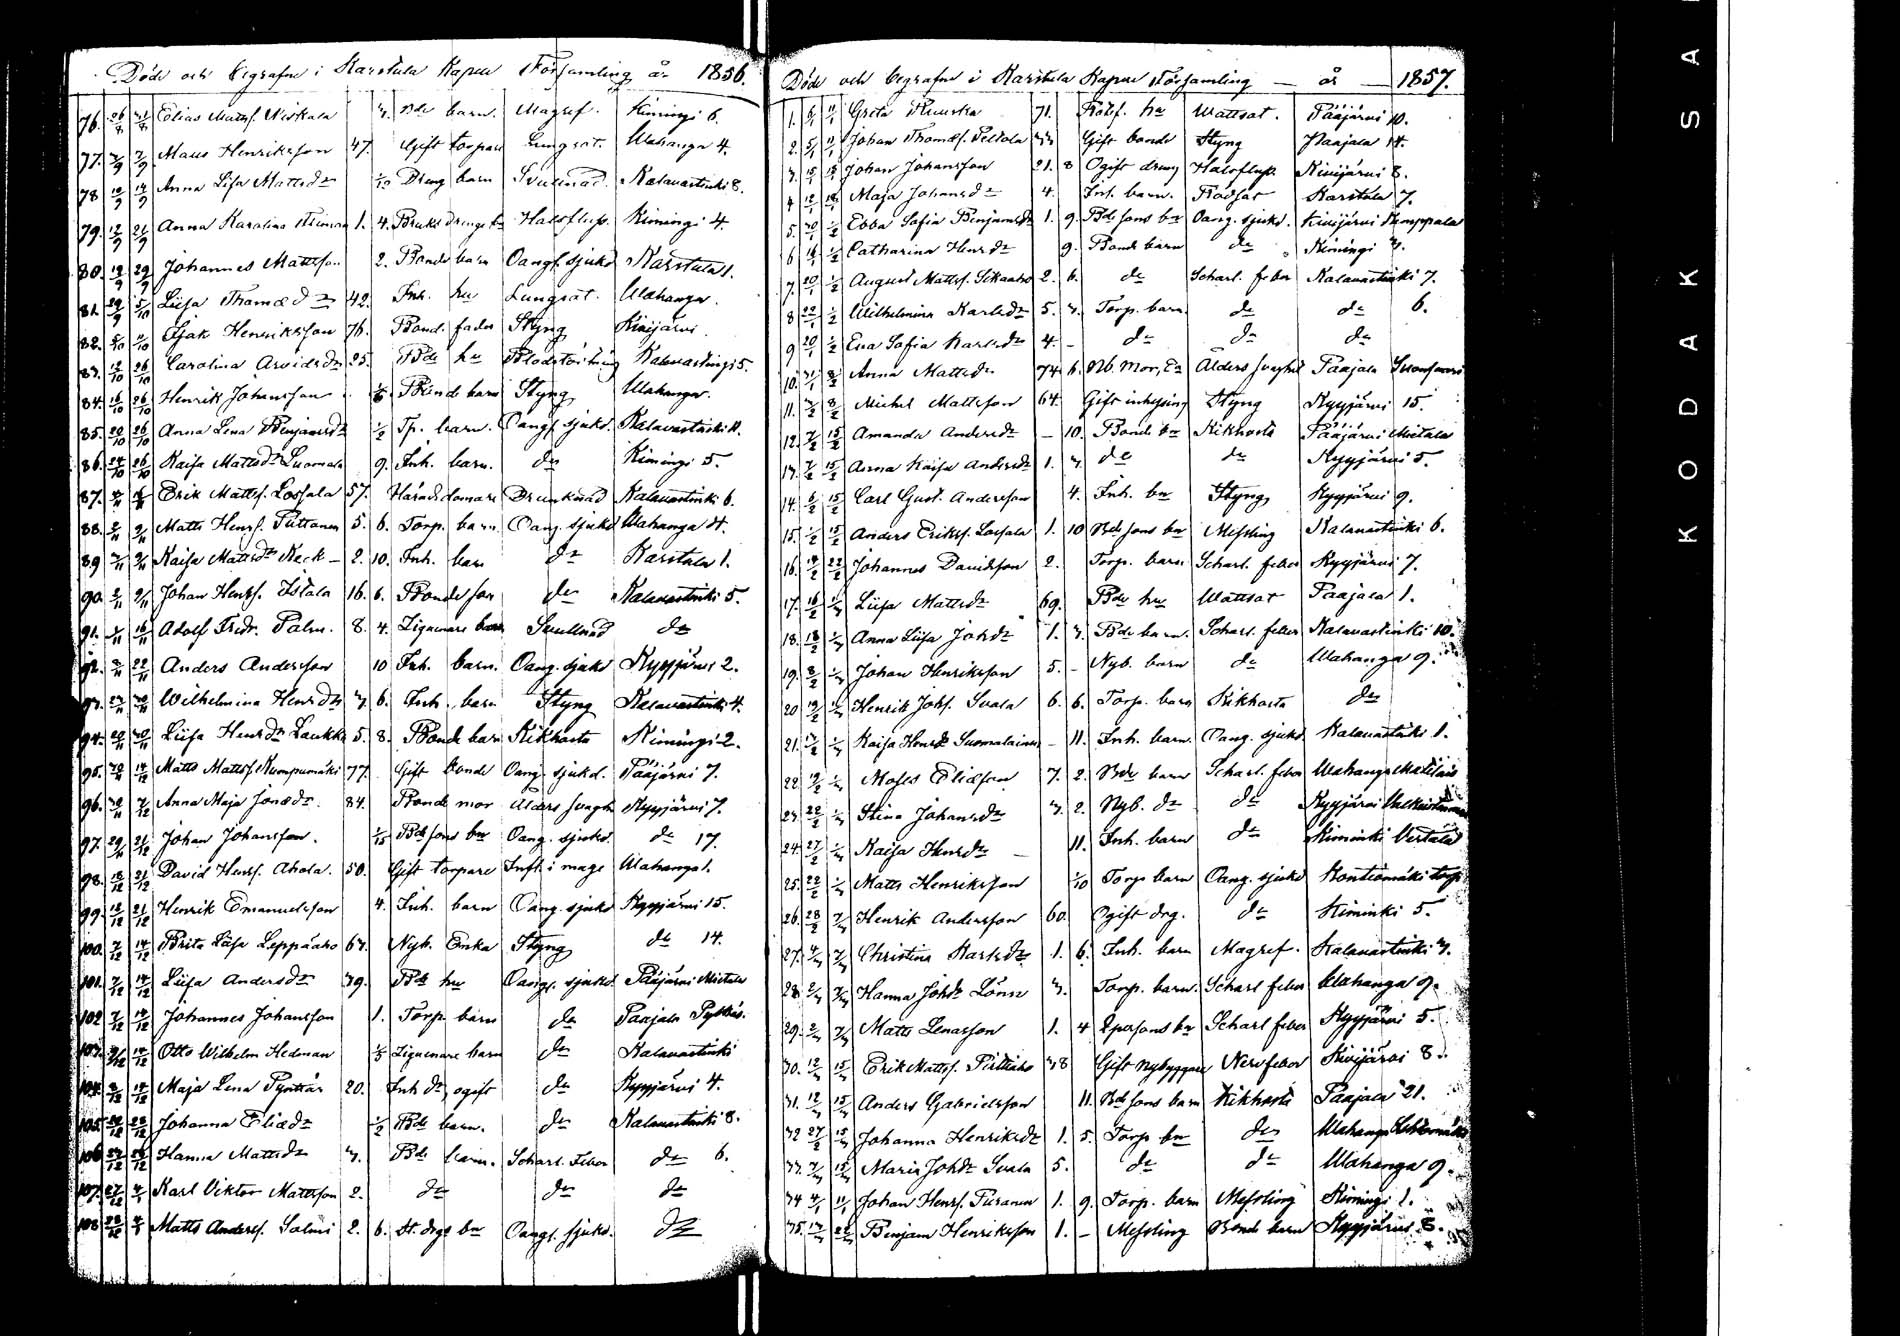 Döde och begrafne i Karstula Kapell Församling år 1856.
76. 26/8 31/8 Elias Mattsf. Niskala 3. Bde barn. Magref. Kimingi 6.
77. 3/9 7/9 Maus Henriksson 47. Gift torpare Lungsot. Wahanga 4.
78 10/9 14/9 Anna Lisa Mattsdr 1/12 Dreng barn Svullnad. Kalavastinki 8.
79. 12/9 21/9 Anna Karolina 1. 4. Bruks drenge bn Halsflus. Kimingi 4.
80. 19/9 29/9 Johannes Mattsson 2. Bonde barn Oangf. sjukd Karstula 1.
81. 29/9 5/10 Liisa Thomædr 42. Inh. hu Lungsot. Wahanga.
82. 5/10 11/10 Isak Henriksson 76. Bond. fader Styng Kivijärvi.
83. 12/10 26/10 Carolina Arvidsdr 25. Bde hu Blodstörtning Kalavastingi 5.
84. 16/10 26/10 Henrik Johansson Bonde barn Styng Wahanga.
85. 20/10 26/10 Anna Lena Benjamsdr 1/2 Tp. barn. Oangf. sjukd. Kalavastinki 11.
86. 24/10 26/10 Kaisa Mattsdr Luomala 9. Inh. barn. do Kimingi 5.
87. Erik Mattsf. Lossala 57. Häradsdomare Drunknad Kalavastinki 6.
88. 2/11 9/11 Matts Henrsf. Puttonen 5. 6. Torp. barn. Oang. sjukd Wahanga 4.
89 3/11 9/11 Kaisa Mattsdr Keck – 2. 10. Inh. barn do Karstula 1.
90. 2/11 9/11 Johan Henrsf. Islala 16. 6. Bonde son do Kalavastinki 5.
91. 1/11 16/11 Adolf Fredr. Palm. 8. 4. Ziguenare barn Svullnad do
92. 22/11 Anders Andersson 10 Inh. barn. Oang. sjukd Kyyjärvi 2.
93. 30/11 Wilhelmina Henrsdr 3. 6. Inh. barn Styng Kalavastinki 4.
94. 20/11 30/11 Liisa Henrsdr Laukka 5. 8. Bonde barn Kikhosta Kimingi 2.
95. 14/12 Matts Mattsf. Kumpumäki 77. Gift bonde Oang. sjukd. Pääjärvi 7.
96. 7/12 Anna Maja Jonædr. 84. Bonde mor Ålders svaght Kyyjärvi 7.
97. 29/11 21/12 Johan Johansson. Bde sons bn Oang. sjukd. do 17.
98. 18/12 21/12 David Henrsf. Ahola. 50. Gift torpare Infl. i mage Wahanga 1.
99. 12/12 21/12 Henrik Emanuelsson 4. Inh. barn Oang. sjukd Kyyjärvi 15.
100. 7/12 14/12 Brita Lisa Leppäaho 63. Nyb. Enka Styng do 14.
101. 7/12 14/12 Liisa Andersdr 39. Bde hu Oangf. sjukd. Pääjärvi Mietala
102 7/12 14/12 Johannes Johansson 1. Torp. barn do Paajala
103. 9/12 14/12 Otto Wilhelm Hedman 1/3 Ziguenare barn do Kalavastinki
104. 14/12 Maja Lena 20. Inh dr, ogift do Kyyjärvi 4.
105. 22/12 28/12 Johanna Eliædr 1/2 Bde barn. do Kalavastinki 8.
106 Hanna Mattsdr 3. Bde barn. Scharl. Feber do 6.
107. 27/12 4/1 Karl Viktor Mattsson 2. do do do
108 28/12 4/1 Matts Andersf. Salmi 2. 6. St. drgs bn Oangf. sjukd. do
Döde och begrafne i Karstula Kapell Församling — år — 1857.
1. 6/1 11/1 Greta 71. Rotef. hu Wattsot. Pääjärvi 10.
2. 5/1 11/1 Johan Thomæf. Peltola 33 Gift bonde Styng Paajala 14.
3. 15/1 18/1 Johan Johansson 21. 8 Ogift dreng Halsflusf. Kivijärvi 8.
4 12/1 18/1 Maja Johansdr 4. Inh. barn. Rödsot Karstula 7.
5. 30/1 1/2 Ebba Sofia Benjamsdr 1. 9. Bde sons bn Oang. sjukd. Kivijärvi Kumppala
6 16/1 1/2 Catharina Henrsdr 9. Bonde barn do Kimingi 3.
7. 20/1 1/2 August Mattsf. Sikaaho 2. 6. do Scharl. feber Kalavastinki 7.
8 22/1 1/2 Wilhelmina Karlsdr 5. 3. Torp. barn. do do 6.
9 20/1 1/2 Eva Sofia Karlsdr 4. – do do do
10. 31/1 8/2 Anna Mattsdr 74. 6. Nb. Mor, Ea Ålders svaghet Paajala Suonsaari
11. 3/2 8/2 Michel Mattsson 64. Gift inhysing Styng Kyyjärvi 15.
12. 7/2 15/2 Amanda Andersdr – 10. Bonde bn Kikhosta Pääjärvi Mietala
13. 7/2 15/2 Anna Kaisa Andersdr 1. 3. do do Kyyjärvi 5.
14. 6/2 15/2 Carl Gust. Andersson 4. Inh. bn Styng Kyyjärvi 9.
15. 15/2 Anders Eriksf. Lossala 1. 10 Bde sons bn Messling Kalavastinki 6.
16. 14/2 22/2 Johannes Davidsson 2. Torp. barn Scharl. feber Kyyjärvi 7.
17. 16/2 1/3 Liisa Mattsdr 69. Bde hu Wattsot Paajala 1.
18. 18/2 1/3 Anna Liisa Johdr 1. 3. Bde barn. Scharl. feber Kalavastinki 10.
19. 8/2 1/3 Johan Henriksson 5. – Nyb. barn do Wahanga 9.
20 19/2 1/3 Henrik Johsf. Svala 6. 6. Torp. barn Kikhosta do
21. 1/3 Kaisa Henrsdr Suomalainen – 11. Inh. barn. Oang. sjukd. Kalavastinki 1.
22 19/2 1/3 Moses Eliasson 7. 2. Bde barn Scharl. feber Wahanga
23 22/2 1/3 Stina Johansdr 3. 2. Nyb. do do Kyyjärvi
24. 27/2 1/3 Kaisa Henrsdr – 11. Inh. barn do Kiminki Vertala
25. 22/2 1/3 Matts Henriksson 1/10 Torp barn Oang. sjukd Kontiomäki torp
26. 28/2 7/3 Henrik Andersson 60. Ogift drg. do Kiminki 5.
27. 4/3 7/3 Christina Karlsdr 1. 6. Inh. barn Magref. Kalavastinki 3.
28. 2/3 7/3 Hanna Johdr Lönn 3. Torp. barn. Scharl feber Wahanga 9.
29. 2/3 7/3 Matts Lenasson 1. 4 sons bn Scharl feber Kyyjärvi 5.
30. 12/3 15/3 Erik Mattsf. Pirttiaho 38 Gift nybyggare Nervfeber Kivijärvi 8.
31. 12/3 15/3 Anders Gabrielsson 11. Bde sons barn Kikhosta Paajala 21.
32 27/2 15/3 Johanna Henriksdr 1. 5. Torp bn do Wahanga
33. 7/3 15/3 Maria Johdr Svala 5. do do Wahanga 9.
34 4/1 11/1 Johan Henrsf. Puranen 1. 9. Torp. barn Messling Kimingi 1.
35. 22/3 Benjam Henriksson 1. – Messling Bonde barn Kyyjärvi 8.
KODAK SA